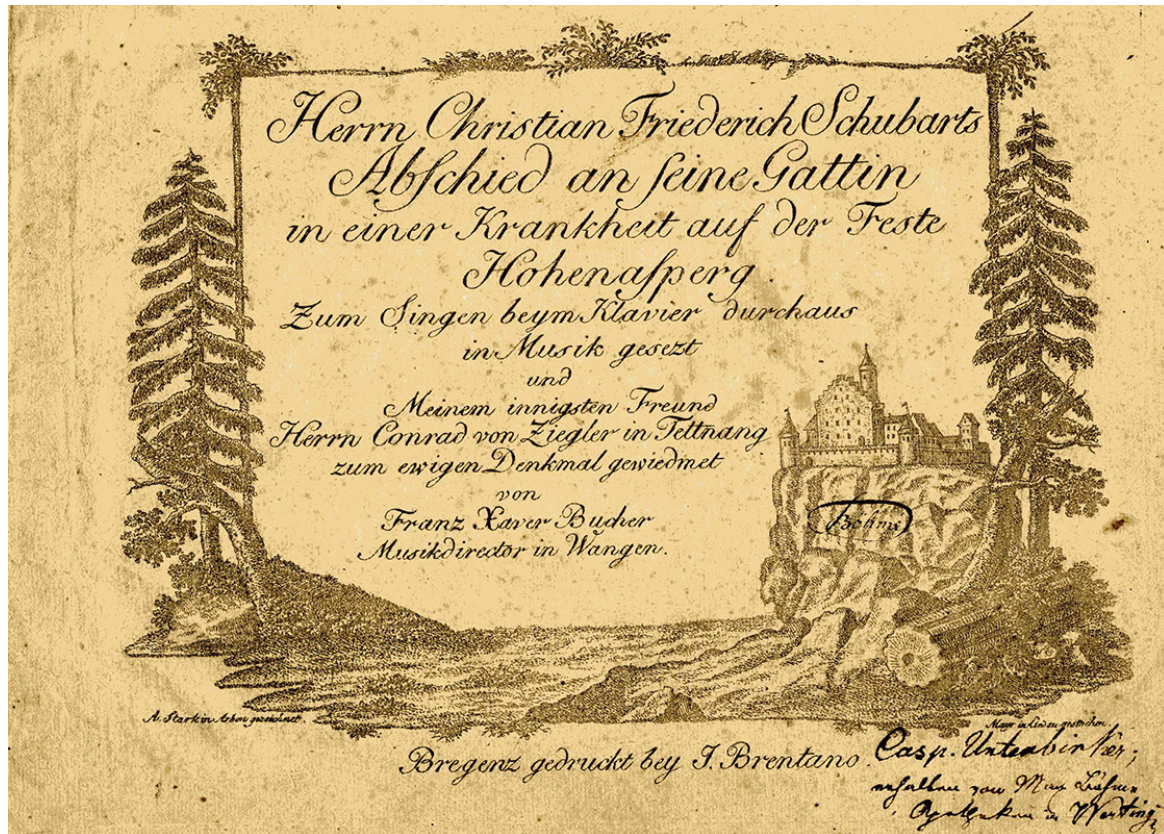 Herrn Christian Friederich Schubarts
Abſchied an ſeine Gattin
in einer Krankheit auf der Feste
Hohenaſperg.
Zum Singen beym Klavier durchaus
in Musik gesezt
und
Meinem innigsten Freund
Herrn Conrad von Ziegler in Tettnang
zum ewigen Denkmal gewiedmet
von
Franz Xaver Bucher
Musikdirector in Wangen.
Böhms
A. Stark in gezeichnet.
Mayr in Lindau gestochen
Bregenz gedruckt bey J. Brentano.
Casp. Unterbirker;
erhalten von Max
Apotheker in Werting